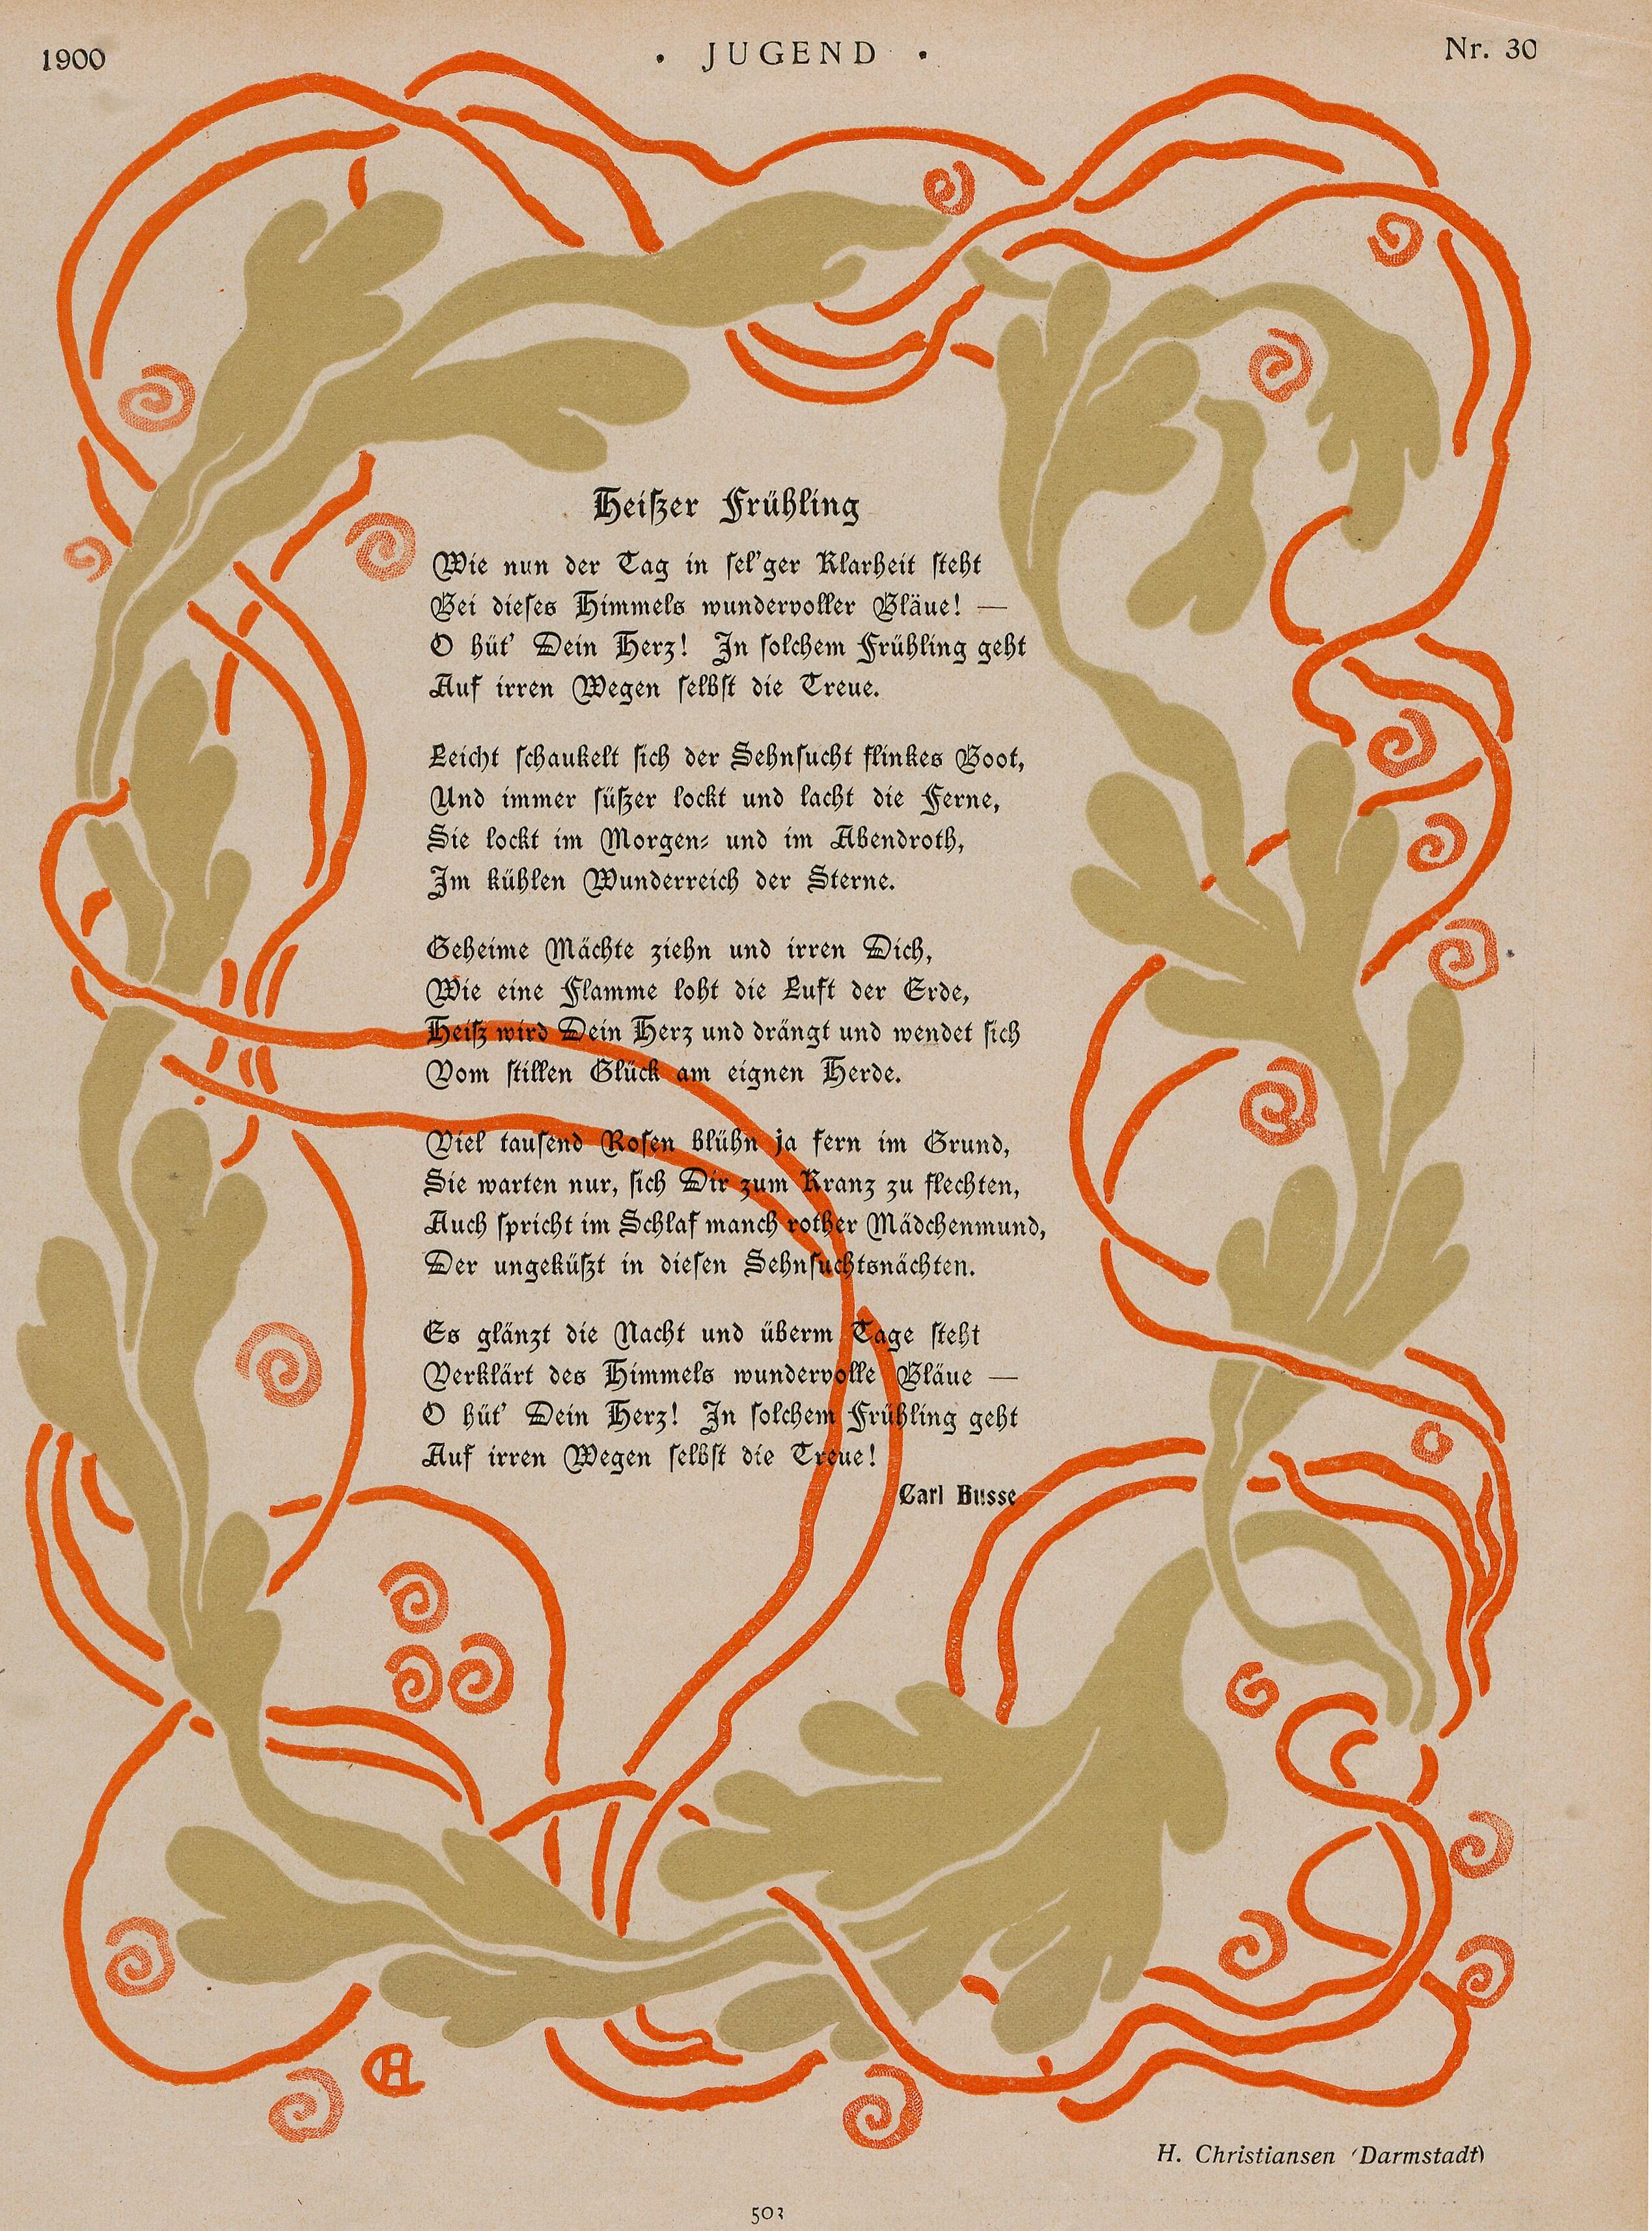 1900
• JUGEND •
Nr. 30
Heißer Frühling
Wie nun der Tag in sel'ger Klarheit steht
Bei dieses Himmels wundervoller Bläue! —
O hüt' Dein Herz! In solchem Frühling geht
Auf irren Wegen selbst die Treue.
Leicht schaukelt sich der Sehnsucht flinkes Boot,
Und immer süßer lockt und lacht die Ferne,
Sie lockt im Morgen- und im Abendroth,
Im kühlen Wunderreich der Sterne.
Geheime Mächte ziehn und irren Dich,
Wie eine Flamme loht die Luft der Erde,
Heiß wird Dein Herz und drängt und wendet sich
Vom stillen Glück am eignen Herde.
Viel tausend Rosen blühn ja fern im Grund,
Sie warten nur, sich Dir zum Kranz zu flechten,
Auch spricht im Schlaf manch rother Mädchenmund,
Der ungeküßt in diesen Sehnsuchtsnächten.
Es glänzt die Nacht und überm Tage steht
Verklärt des Himmels wundervolle Bläue —
O hüt' Dein Herz! In solchem Frühling geht
Auf irren Wegen selbst die Treue!
Carl Busse
H. Christiansen (Darmstadt)
503